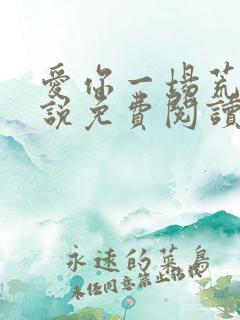 愛你一場荒
說免費閱讀
永遠的菜鳥
未任同意禁止轉載